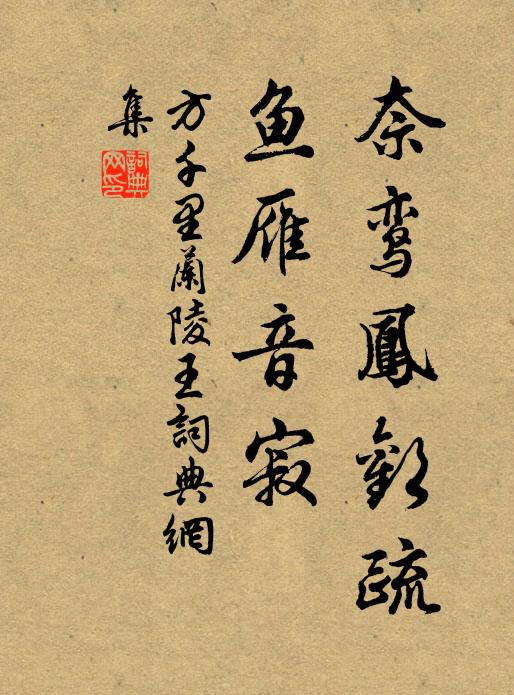 奈鸾鳳歡疏
鱼雁音寂
方千里蘭陵王詞典網
集
詞典
网印